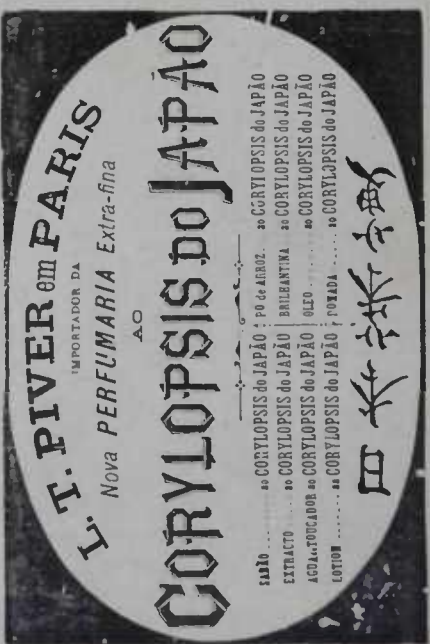 L. T. PIVER em PARIS
IMPORTADOR DA
Nova PERFUMARIA Extra-fina
AO
CORYLOPSIS DO JAPÃO
SABÃO ... ao CORYLOPSIS do JAPÃO
EXTRACTO ... ao CORYLOPSIS do JAPÃO
AGUA de TOUCADOR ao CORYLOPSIS do JAPÃO
LOTION ....... ao CORYLOPSIS do JAPÃO
PO de ARROZ. . ao CORYLOPSIS do JAPÃO
BRILHANTINA ao CORYLOPSIS do JAPÃO
OLEO ........ ao CORYLOPSIS do JAPÃO
POMADA ...... ao CORYLOPSIS do JAPÃO